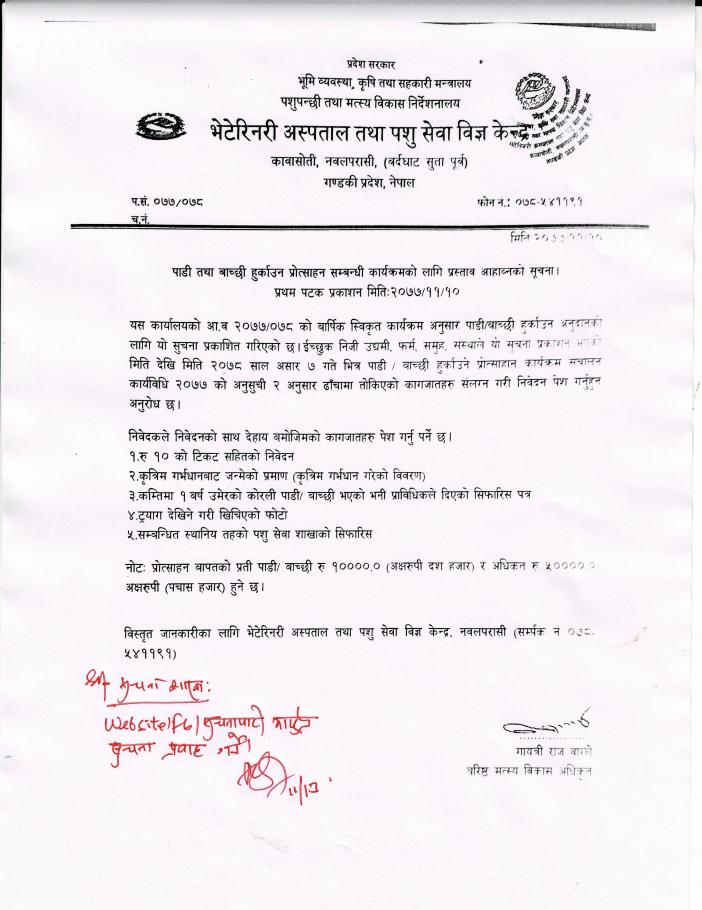 प्रदेश सरकार
भूमि व्यवस्था, कृषि तथा सहकारी मन्त्रालय
पशुपन्छी तथा मत्स्य विकास निर्देशनालय
भेटेरिनरी अस्पताल तथा पशु सेवा विज्ञ केन्द्र
कावासोती, नवलपरासी, (बर्दघाट सुता पूर्व)
गण्डकी प्रदेश, नेपाल
प.सं. ०७७/०७८ फोन नं.: ०७८-५४११९१
च.नं.
मिति २०७७/११/१०
पाडी तथा बाच्छी हुर्काउन प्रोत्साहन सम्बन्धी कार्यक्रमको लागि प्रस्ताव आहाव्नको सूचना।
प्रथम पटक प्रकाशन मितिः२०७७/११/१०
यस कार्यालयको आ.ब २०७७/०७८ को बार्षिक स्विकृत कार्यक्रम अनुसार पाडी/बाच्छी हुर्काउन अनुदानको
लागि यो सुचना प्रकाशित गरिएको छ। ईच्छुक निजी उद्यमी, फर्म, समुह, संस्थाले यो सुचना प्रकाशन भएको
मिति देखि मिति २०७८ साल असार ७ गते भित्र पाडी / बाच्छी हुर्काउने प्रोत्साहान कार्यक्रम संचालन
कार्यविधि २०७७ को अनुसुची २ अनुसार ढाँचामा तोकिएको कागजातहरु संलग्न गरी निवेदन पेश गर्नुहुन
अनुरोध छ।
निवेदकले निवेदनको साथ देहाय बमोजिमको कागजातहरु पेश गर्नु पर्ने छ।
१.रु १० को टिकट सहितको निवेदन
२.कृत्रिम गर्भधानबाट जन्मेको प्रमाण (कृत्रिम गर्भधान गरेको विवरण)
३.कम्तिमा १ बर्ष उमेरको कोरली पाडी/ बाच्छी भएको भनी प्राविधिकले दिएको सिफारिस पत्र
४.ट्रयाग देखिने गरी खिचिएको फोटो
५.सम्बन्धित स्थानिय तहको पशु सेवा शाखाको सिफारिस
नोटः प्रोत्साहन बापतको प्रती पाडी/ बाच्छी रु १००००.० (अक्षरुपी दश हजार) र अधिकत रु ५००००.०
अक्षरुपी (पचास हजार) हुने छ।
विस्तृत जानकारीका लागि भेटेरिनरी अस्पताल तथा पशु सेवा विज्ञ केन्द्र, नवलपरासी (सर्म्पक न ०७८-
५४११९१)
श्री सुचना शाखा:
Website/fb/सुचनापाटी मार्फत
सुचना प्रवाह गर्ने।
११/१०
गायत्री राज वाग्ले
वरिष्ठ मत्स्य विकास अधिकृत